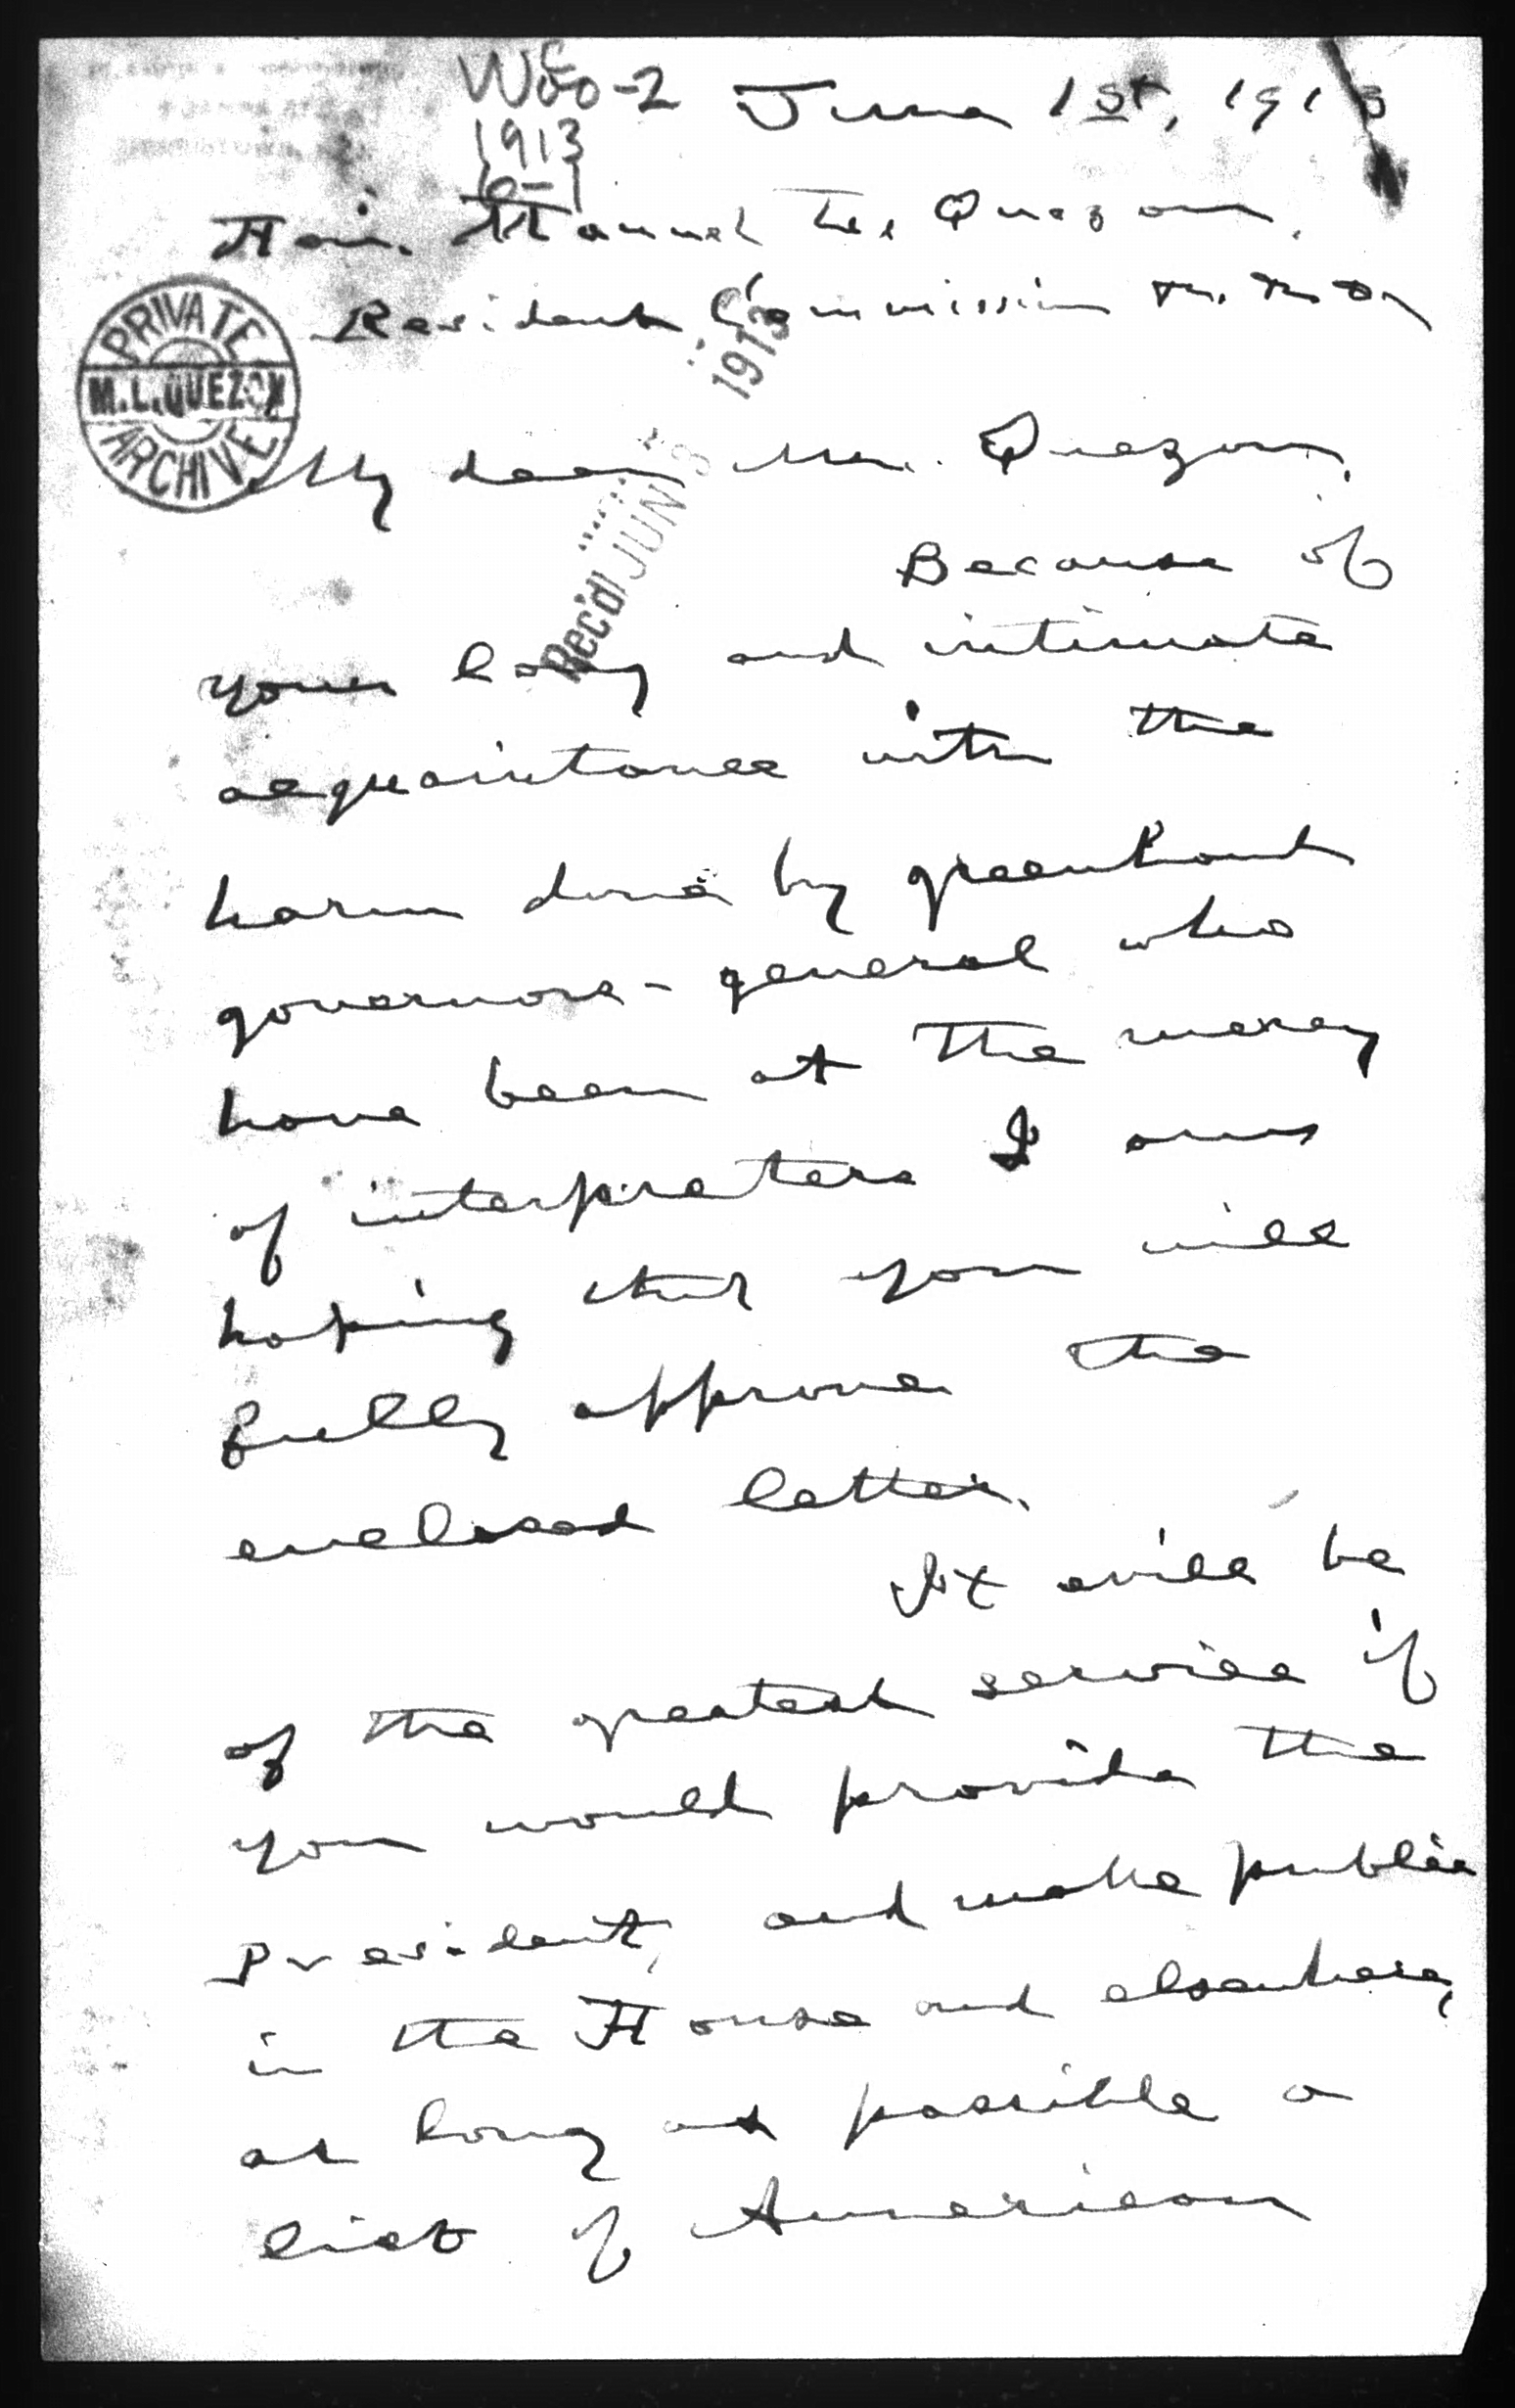 WCo-2
1913
6-1
June 1st, 1913
Hon. Manuel L. Quezon,
Resident Commission
PRIVATE
M.L.QUEZON
ARCHIVE
1913
Rec'd JUN 3
My dear Mr. Quezon,
Because of
your long and intimate
acquaintance with the
harm done by greenhand
governors-general who
have been at the mercy
of interpreters I am
hoping that you will
fully approve the
enclosed letter.
It will be
of the greatest service if
you would provide the
President, and make public
in the House and elsewhere,
as long as possible a
list of American